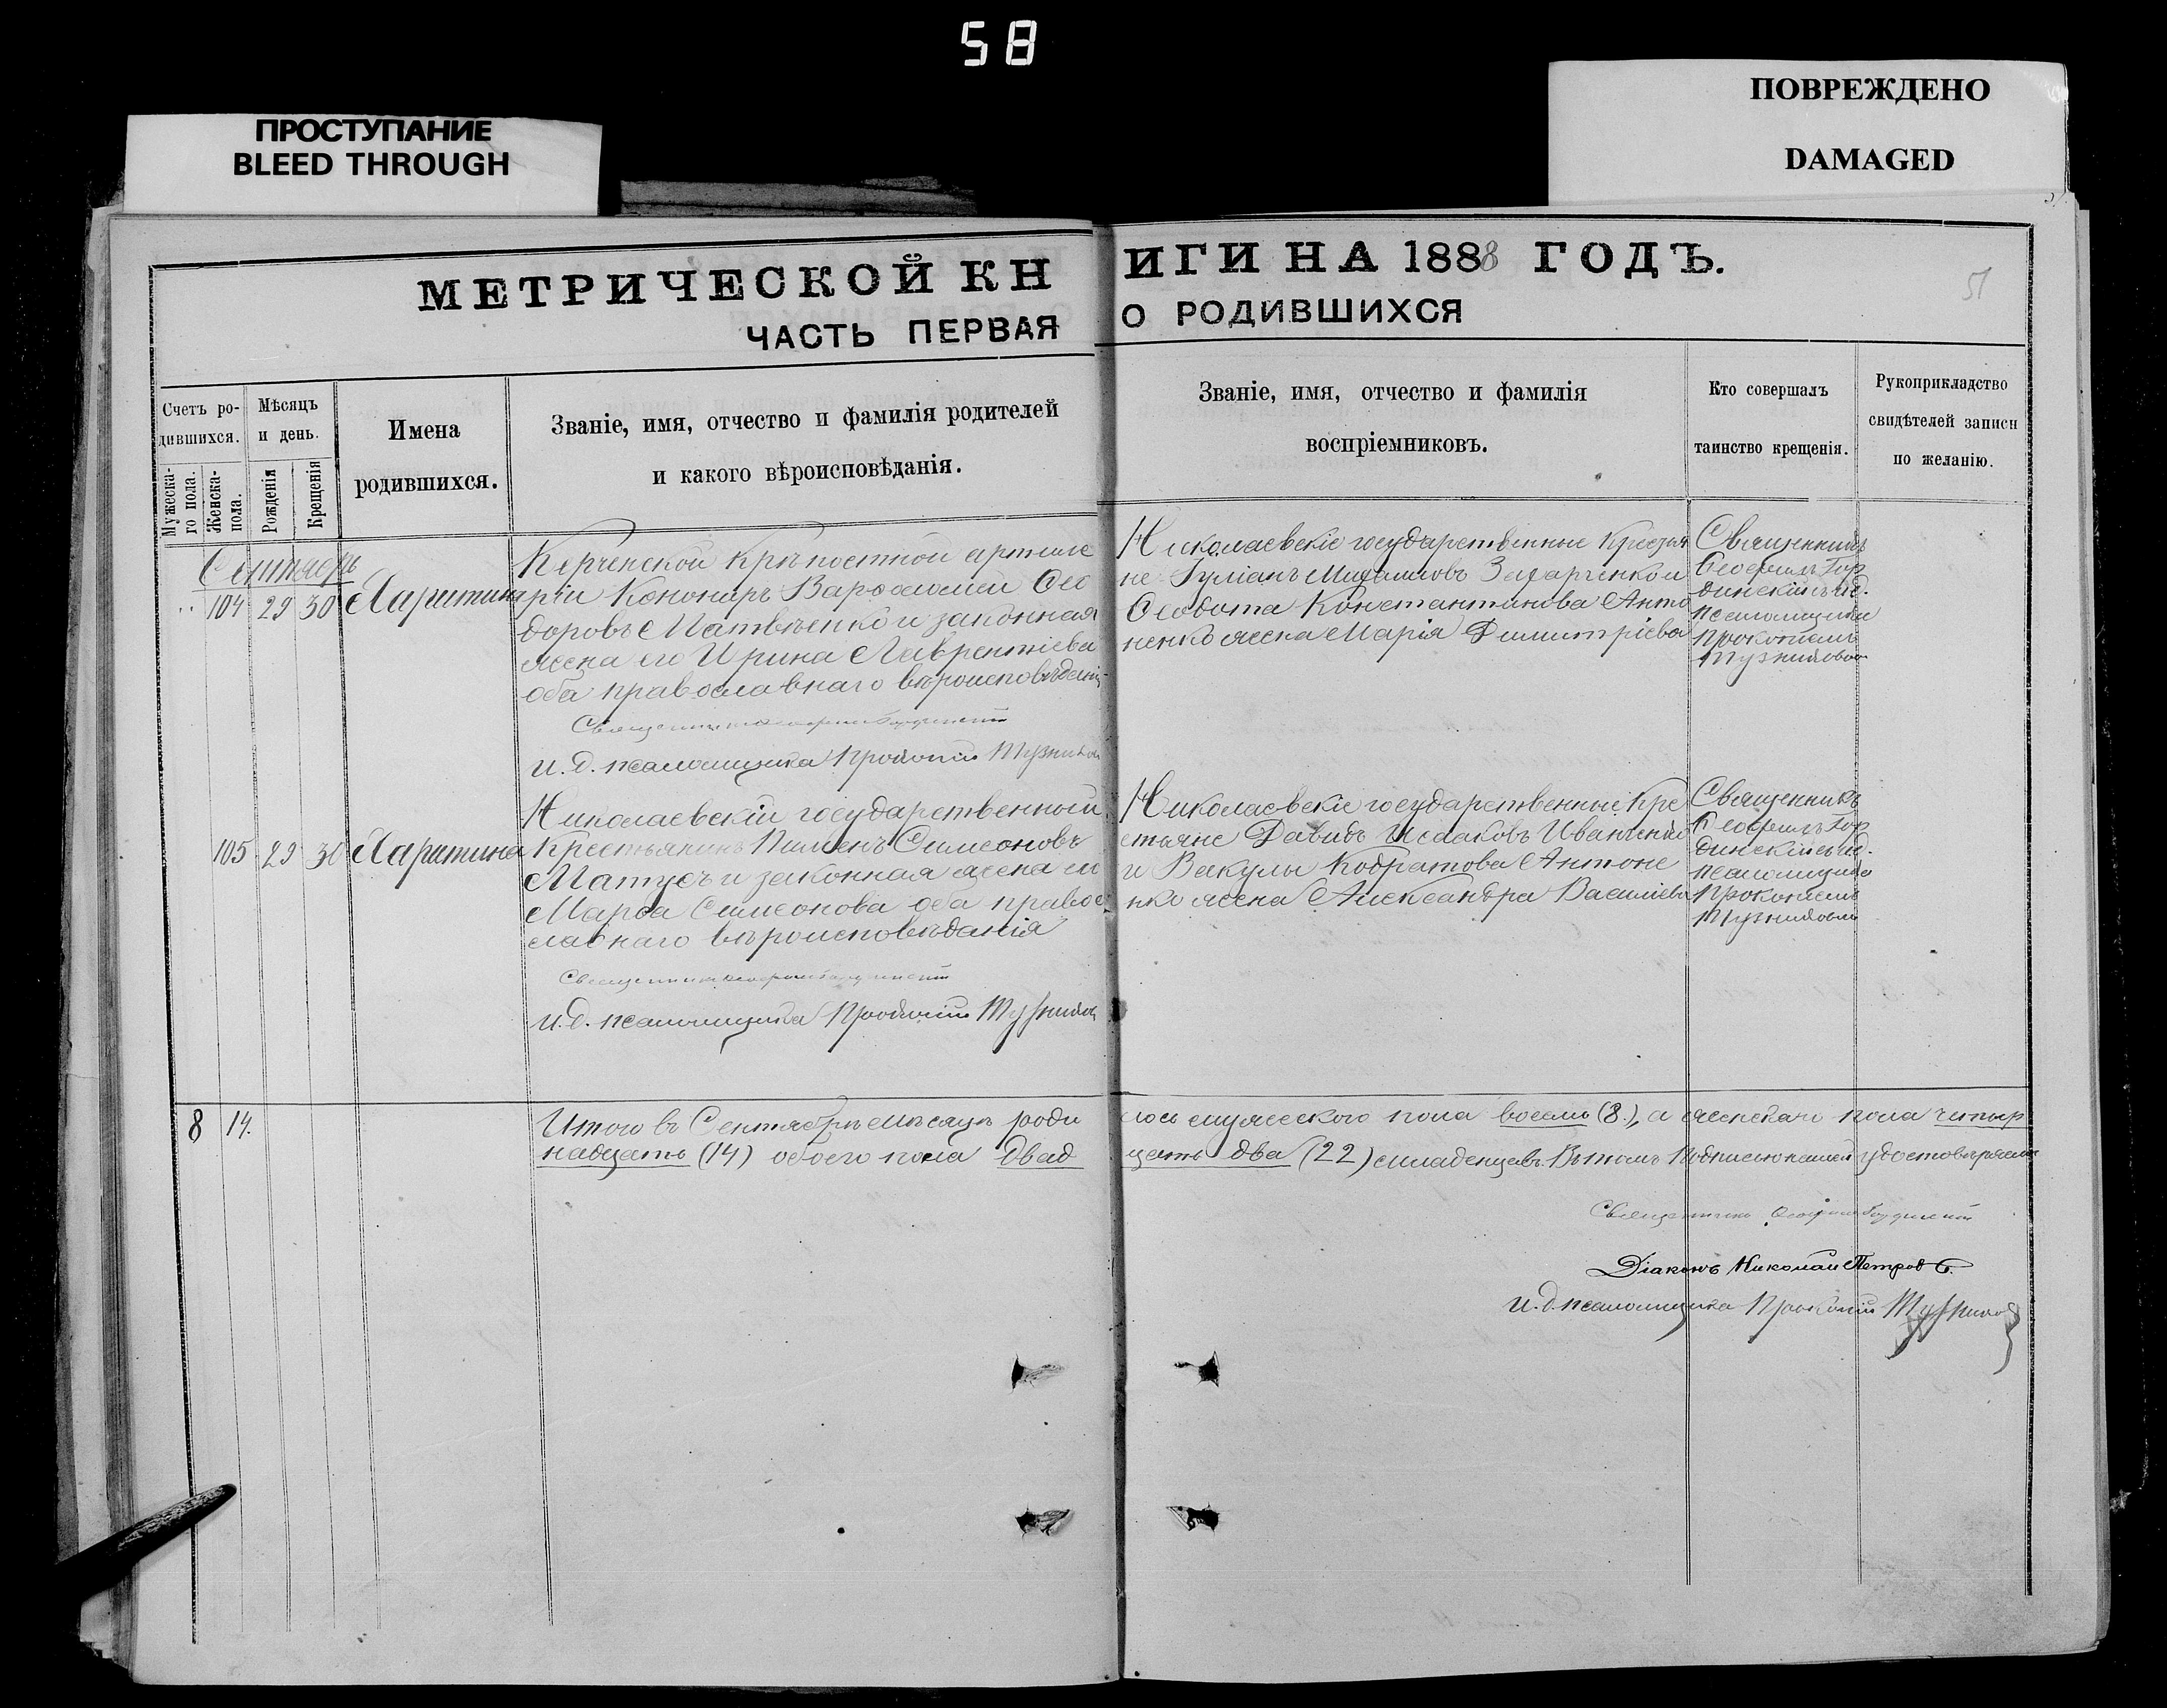 58
ПРОСТУПАНИЕ
BLEED THROUGH
ПОВРЕЖДЕНО
DAMAGED
МЕТРИЧЕСКОЙ КНИГИ НА 1888 ГОДЪ.
51
ЧАСТЬ ПЕРВАЯ О РОДИВШИХСЯ
Счетъ ро-
дившихся.
Мужеска-
го пола.
Женска-
пола.
Мѣсяцъ
и день.
Рожденія
Крещенія
Имена
родившихся.
Званіе, имя, отчество и фамилія родителей
и какого вѣроисповѣданія.
Званіе, имя, отчество и фамилія
воспріемниковъ.
Кто совершалъ
таинство крещенія.
Рукоприкладство
свидѣтелей записи
по желанію.
Сентябрь
104 29 30 Харитина
Керченской крѣпостной артиле
ріи Конониръ Варфоломей Ѳео
доровъ Матвѣенко и законная
жена его Ирина Лаврентіева
оба православнаго вѣроисповѣданія
Священникъ
и. д. псаломщика Прокопій
Николаевскіе государственные крестья
не Іуліанъ Михаиловъ Захарченко и
Ѳеодота Константинова Анто
ненко жена Марія Димитріева
Священникъ
Ѳеофилъ Гор
динскій съ и.д.
псаломщика
Прокопіемъ
105 29 30 Харитина
Николаевскій государственный
Крестьянинъ Пименъ Симеоновъ
Матусъ и законная жена его
Марфа Симеонова оба правос
лавнаго вѣроисповѣданія
Священникъ
и. д. псаломщика Прокопій
Николаевскіе государственные кре
стьяне Давидъ Исааковъ Иванченко
и Вакулы Кодратова Антоне
нко жена Александра Василіева
Священникъ
Ѳеофилъ Гор
динскій съ и.д.
псаломщика
Прокопіемъ
8 14.
Итого въ Сентябрѣ мѣсяцѣ родилось мужескаго пола восемь (8), а женскаго пола четыр
надцать (14) обоего пола двадцать два (22) младенцевъ. Въ томъ подписью нашей удостовѣряемъ
Священникъ Ѳеофилъ Гординскій
Діаконъ Николай Петровъ.
И. д. псаломщика Прокопій